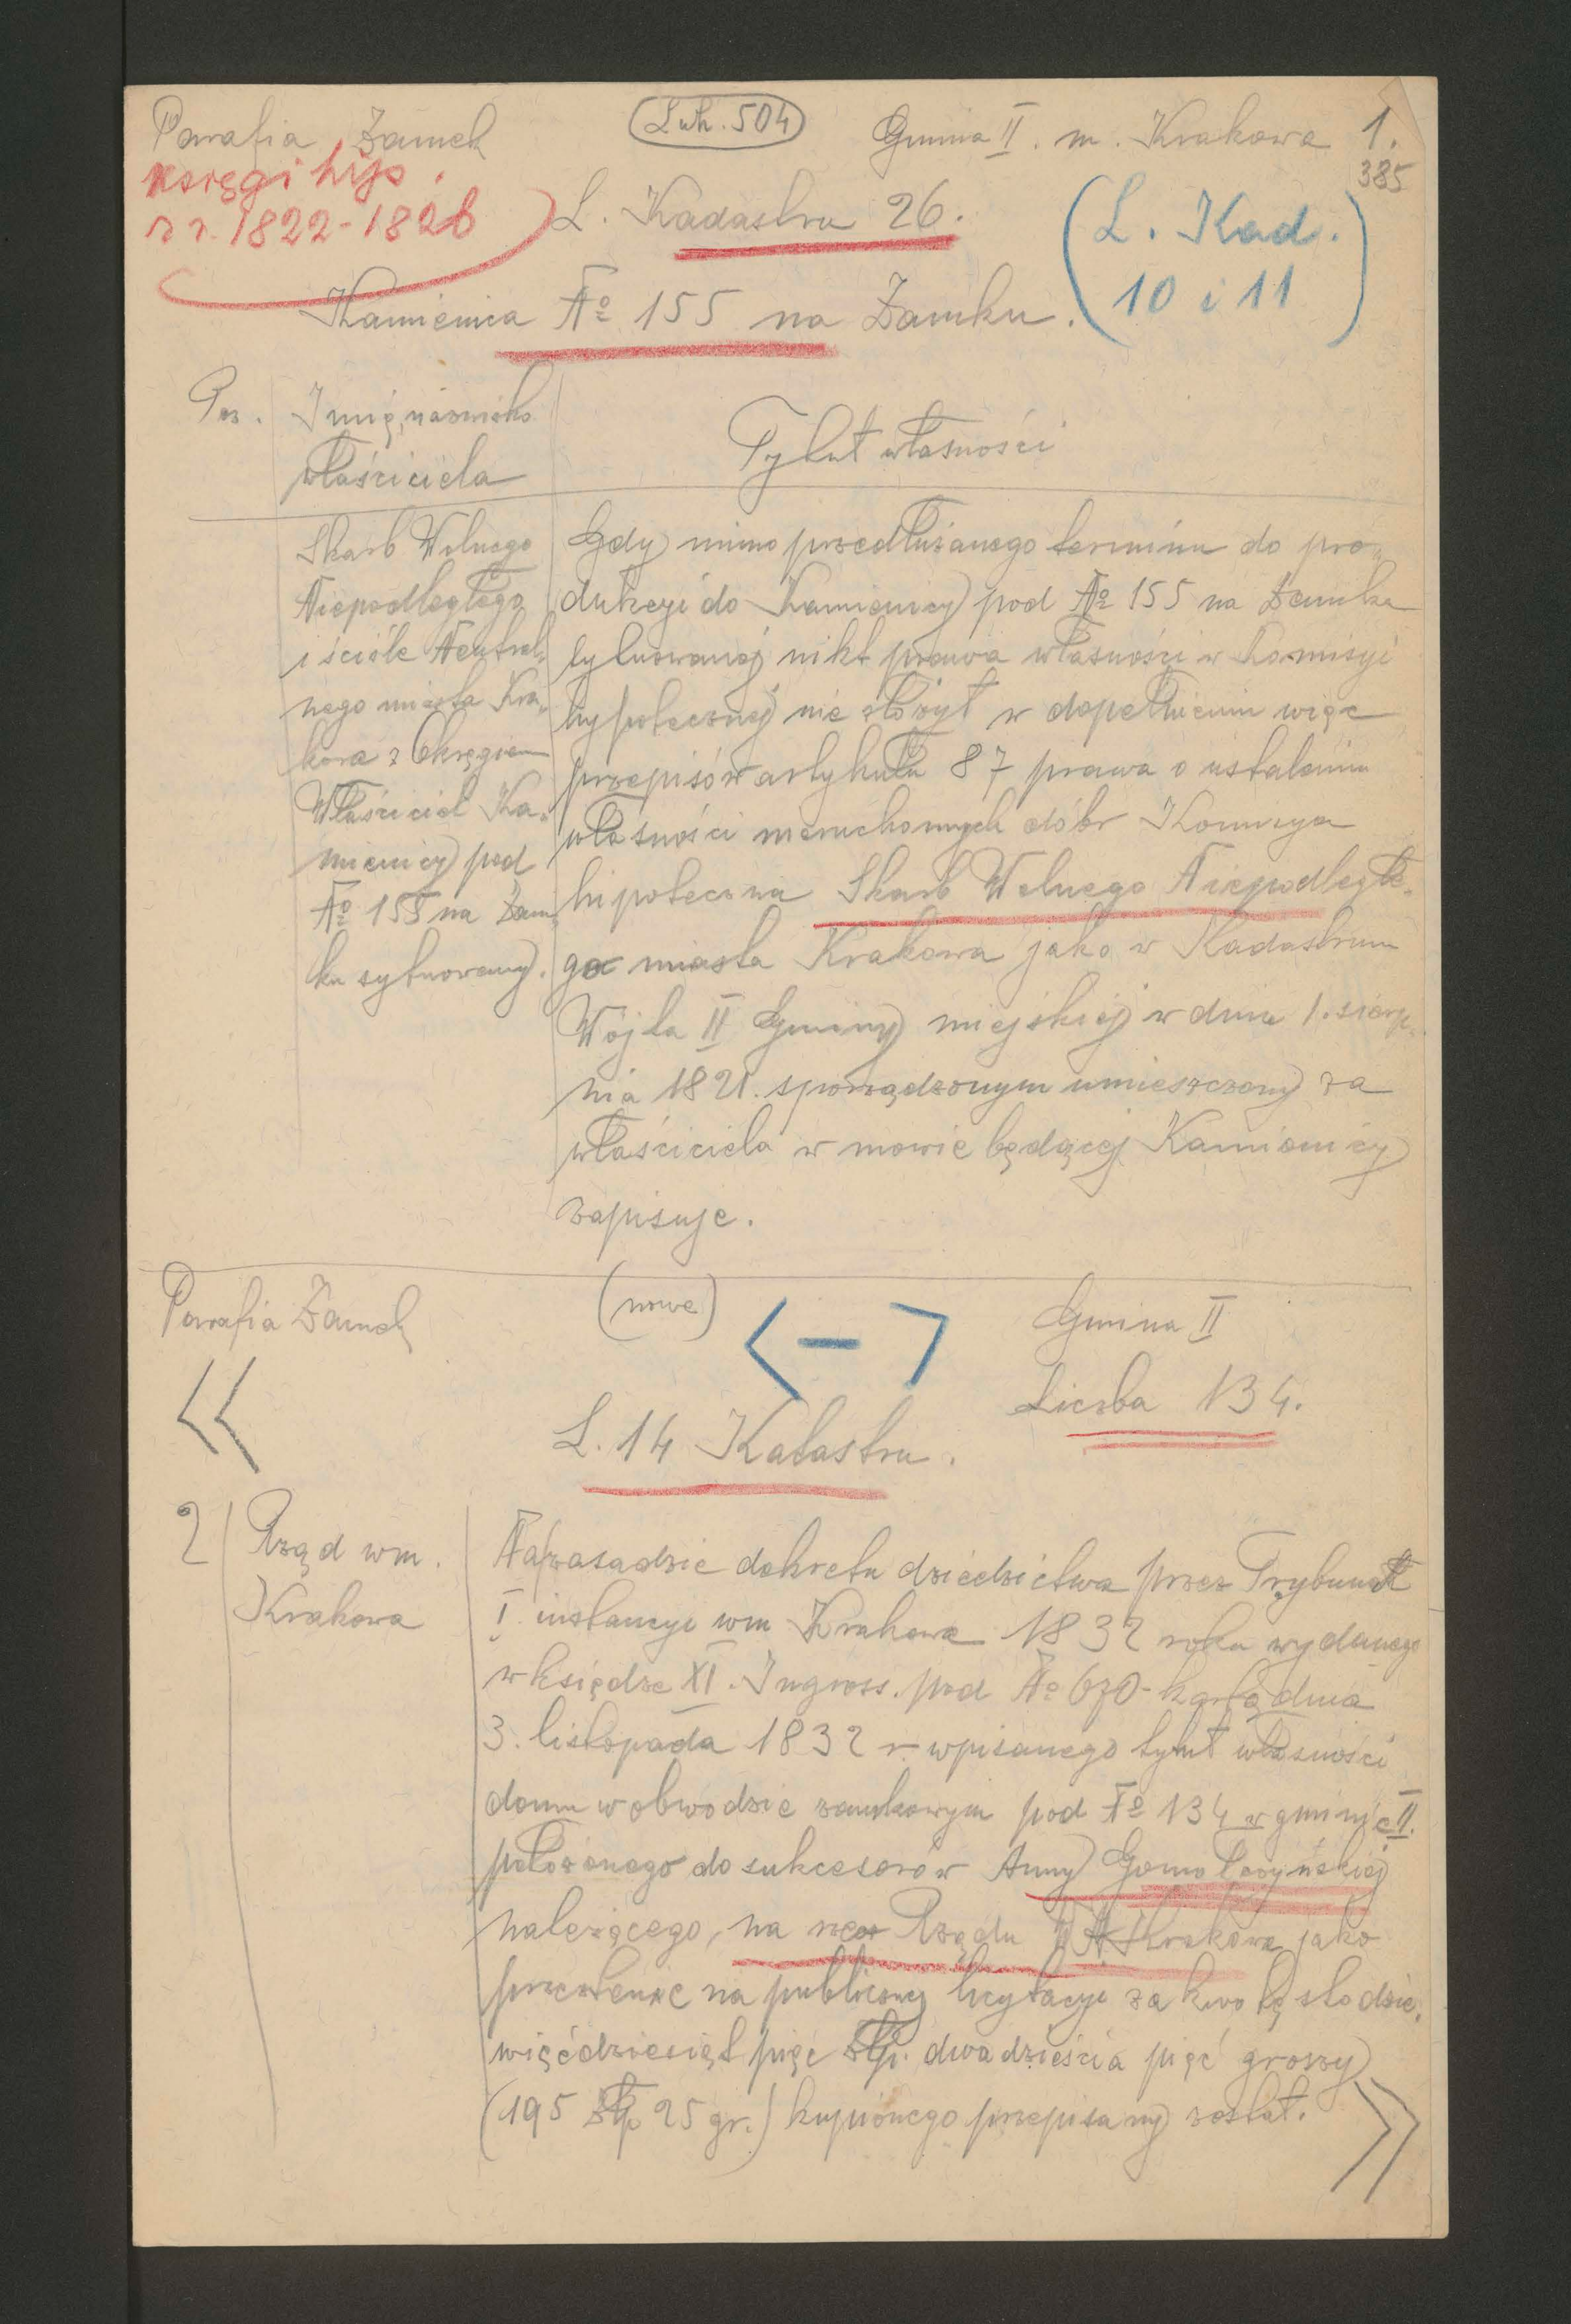 Parafia Zamek
Lwh. 504
Gmina II. m. Krakowa 1.
385
księgi hip.
z r. 1822-1826
L. Kadastru 26.
(L. Kad.
10 i 11)
Kamienica No 155 na Zamku.
Poz.
Imię, nazwisko
właściciela
Tytuł własności
Skarb Wolnego
Niepodległego
i ściśle Neutral„
nego miasta Kra„
kowa z Okręgiem
Właściciel Ka„
mienicy pod
No 155 na Zam„
ku sytuowanej.
Gdy mimo przedłużanego terminu do pro„
dukcyi do Kamienicy pod No 155 na Zamku
sytuowanej nikt prawa własności w Komisyi
hypotecznej nie złożył w dopełnieniu więc
przepisów artykułu 87 prawa o ustaleniu
własności nieruchomych dóbr Komisya
hipoteczna Skarb Wolnego Niepodległe„
go miasta Krakowa jako w Kadastrum
Wójta II Gminy miejskiej w dniu 1. sierp„
nia 1821. sporządzonym umieszczony za
właściciela w mowie będącej Kamienicy
zapisuje.
Parafia Zamek
(nowe)
< — >
Gmina II
Liczba 134.
<<
L. 14 Katastru.
2
Rząd wm.
Krakowa
Na zasadzie dekretu dziedzictwa przez Trybunał
I. instancyi wm Krakowa 1832 roku wydanego
w księdze XI. Ingross. pod No 670 kartą dnia
3. listopada 1832 r. wpisanego tytuł własności
domu w obwodzie zamkowym pod No 134 w gminie II.
położonego do sukcesorów Anny Gomołczyńskiej
należącego, na rzecz Rządu W. M. Krakowa jako
przezeń na publicznej licytacyi za kwotę sto dzie„
więćdziesiąt pięć złp. dwadzieścia pięć groszy
(195 złp 25 gr.) kupionego przepisany został.
>>